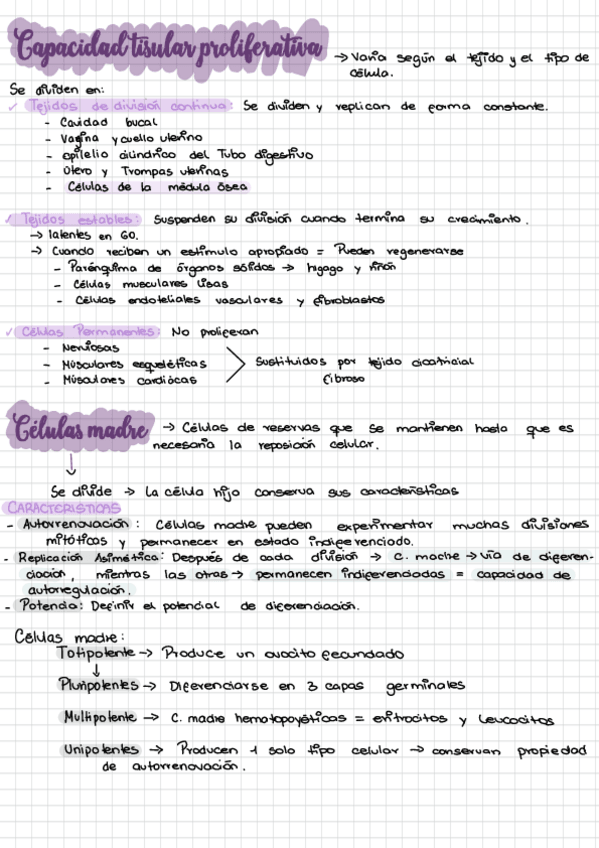 Capacidad tisular proliferativa → Varia según el tejido y el tipo de
célula.
Se dividen en:
✓ Tejidos de división continua: Se dividen y replican de forma constante.
- Cavidad bucal
- Vagina y cuello uterino
- epilelio cilindrico del Tubo digestivo
- Utero y Trompas uterinas
- Células de la médula ósea
✓ Tejidos estables: Suspenden su división cuando termina su crecimiento.
→ latentes en G0.
→ Cuando reciben un estímulo apropiado = Pueden regenerarse
- Parénquima de órganos sólidos → higago y riñón
- Células musculares lisas
- Células endoteliales vasculares y fibroblastos
✓ Células Permanentes: No proliferan
- Nerviosas
- Músculares esqueléticas
- Músculares cardiácas
Sustituidos por tejido cicatricial
fibroso
Células madre → Células de reservas que se mantienen hasta que es
necesaria la reposición celular.
↓
Se divide → La célula hijo conserva sus características
CARACTERISTICAS
- Autorrenovación: Células madre pueden experimentar muchas divisiones
mitóticas y permanecer en estado indiferenciado.
- Replicación Asimétrica: Después de cada división → C. madre → vía de diferen-
ciación, mientras las otras → permanecen indiferenciadas = capacidad de
autorregulación.
- Potencia: Definir el potencial de diferenciación.
Células madre:
Totipotente → Produce un ovocito fecundado
↓
Pluripotentes → Diferenciarse en 3 capas germinales
Multipotente → C. madre hematopoyéticas = eritrocitos y leucocitos
Unipotentes → Producen 1 solo tipo celular → conservan propiedad
de autorrenovación.